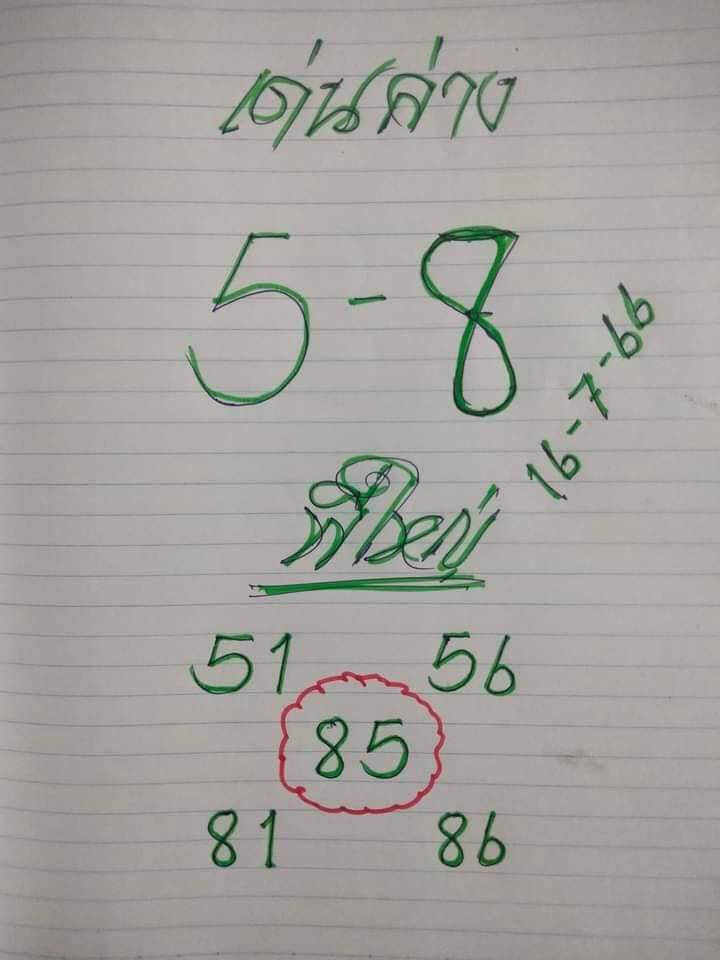 เด่นล่าง
5-8
16-7-66
พี่ใหญ่
51 56
85
81 86